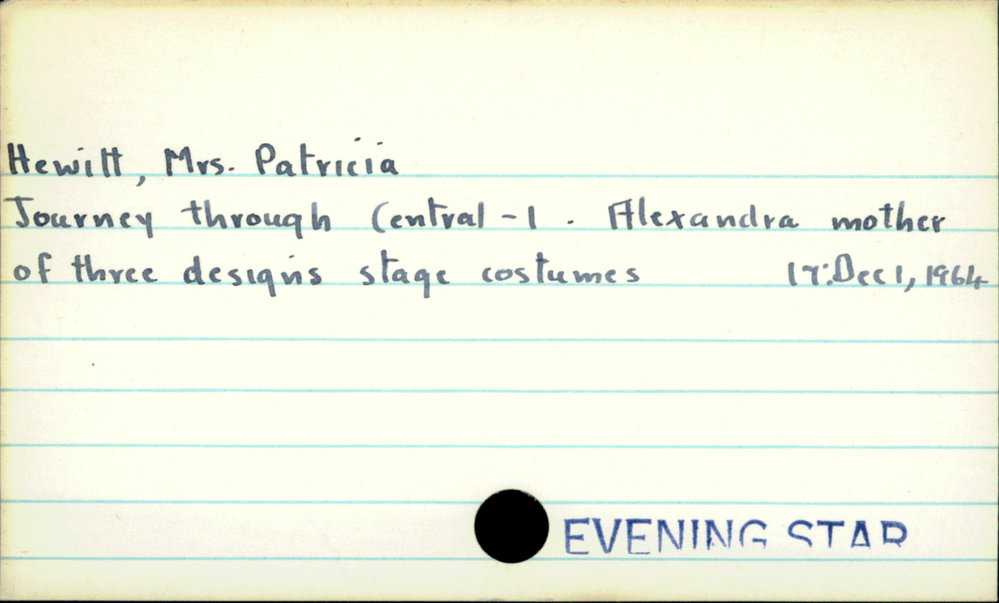 Hewitt, Mrs. Patricia
Journey through Central - 1. Alexandra mother
of three designs stage costumes 17:Dec 1, 1964
EVENING STAR